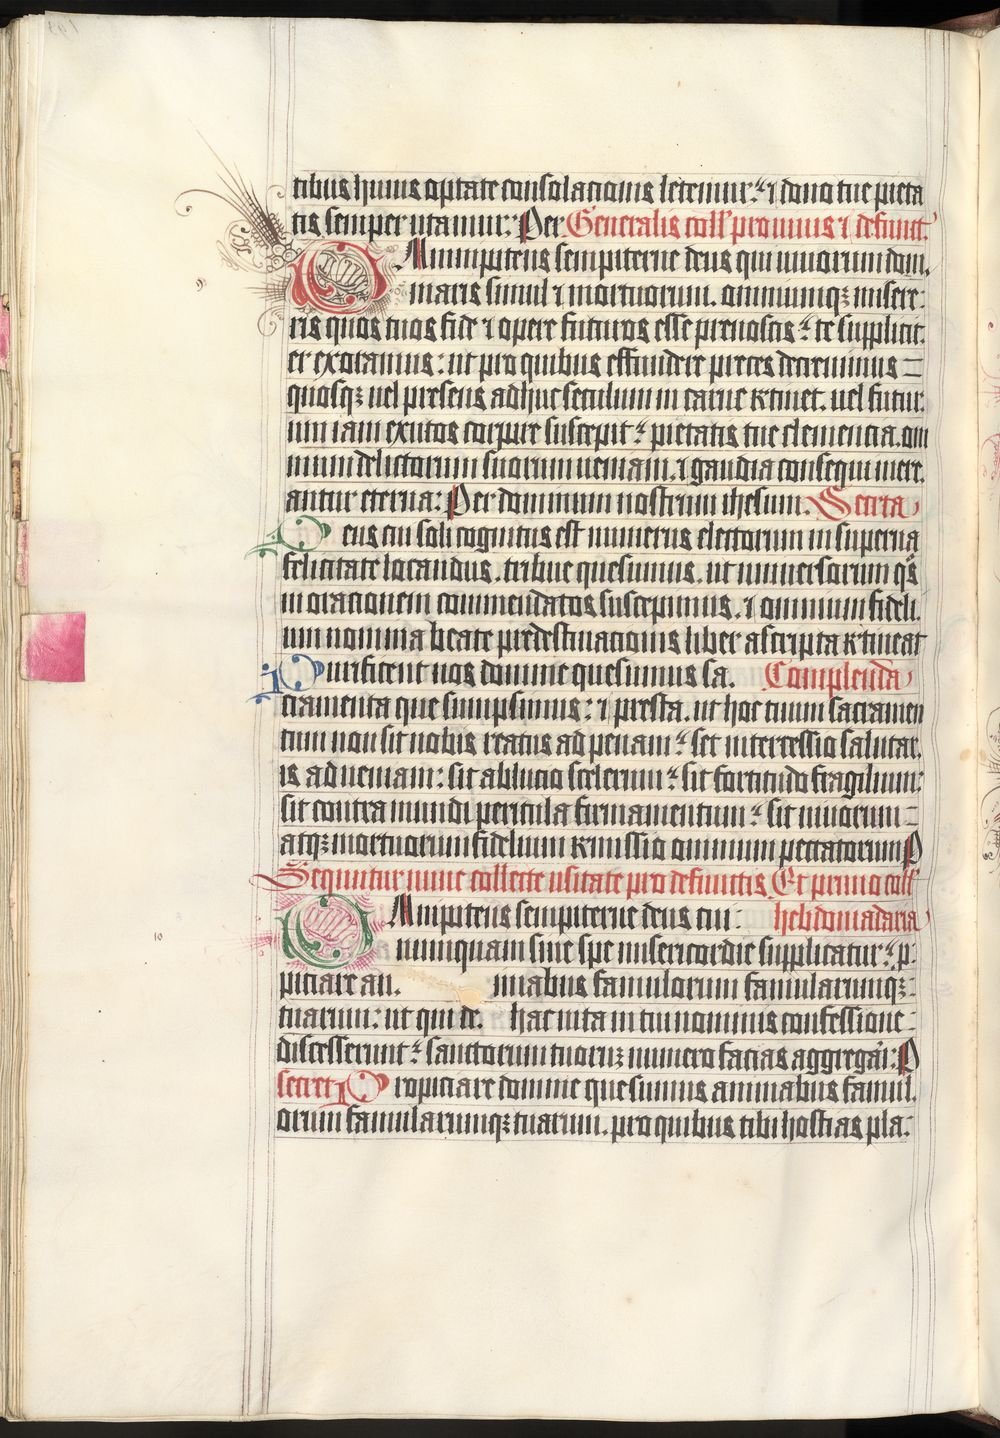 tibus huius optate consolacionis letemur: ⁊ dono tue pieta
tis semper utamur: Per Generalis coll' pro viuis ⁊ defunct.
OMnipotens sempiterne deus qui viuorum dom
inaris simul ⁊ mortuorum. omniumqꝫ misere
ris quos tuos fide ⁊ opere futuros esse prenoscis: te supplicit
er exoramus: ut pro quibus effundere preces decreuimus
quosqꝫ uel presens adhuc seculum in carne retinet. uel futur
um iam exutos corpore suscepit: pietatis tue clemencia. om
nium delictorum suorum ueniam. ⁊ gaudia consequi mere
antur eterna: Per dominum nostrum ihesum. Secreta
Deus cui soli cognitus est numerus electorum in superna
felicitate locandus. tribue quesumus. ut uniuersorum q̄s
in oracionem commendatos suscepimus. ⁊ omnium fideli
um nomina beate predestinacionis liber ascripta retineat
Purificent nos domine quesumus sa. Complenda
cramenta que sumpsimus: ⁊ presta. ut hoc tuum sacramen
tum non sit nobis reatus ad penam: set intercessio salutar
is ad ueniam: sit ablucio scelerum: sit fortitudo fragilium:
sit contra mundi pericula firmamentum: sit uiuorum
atqꝫ mortuorum fidelium remissio omnium peccatorum P
Sequntur nunc collecte usitate pro defunctis Et primo coll'
OMnipotens sempiterne deus cui: hebdomadaria
numquam sine spe misericordie supplicatur: p
piciare an. imabus famulorum famularumqꝫ
tuarum: ut qui de. hac uita in tui nominis confessione
discesserunt: sanctorum tuorum numero facias aggregari: P
secret Propiciare domine quesumus animabus famul
orum famularumqꝫ tuarum. pro quibus tibi hostias pla: